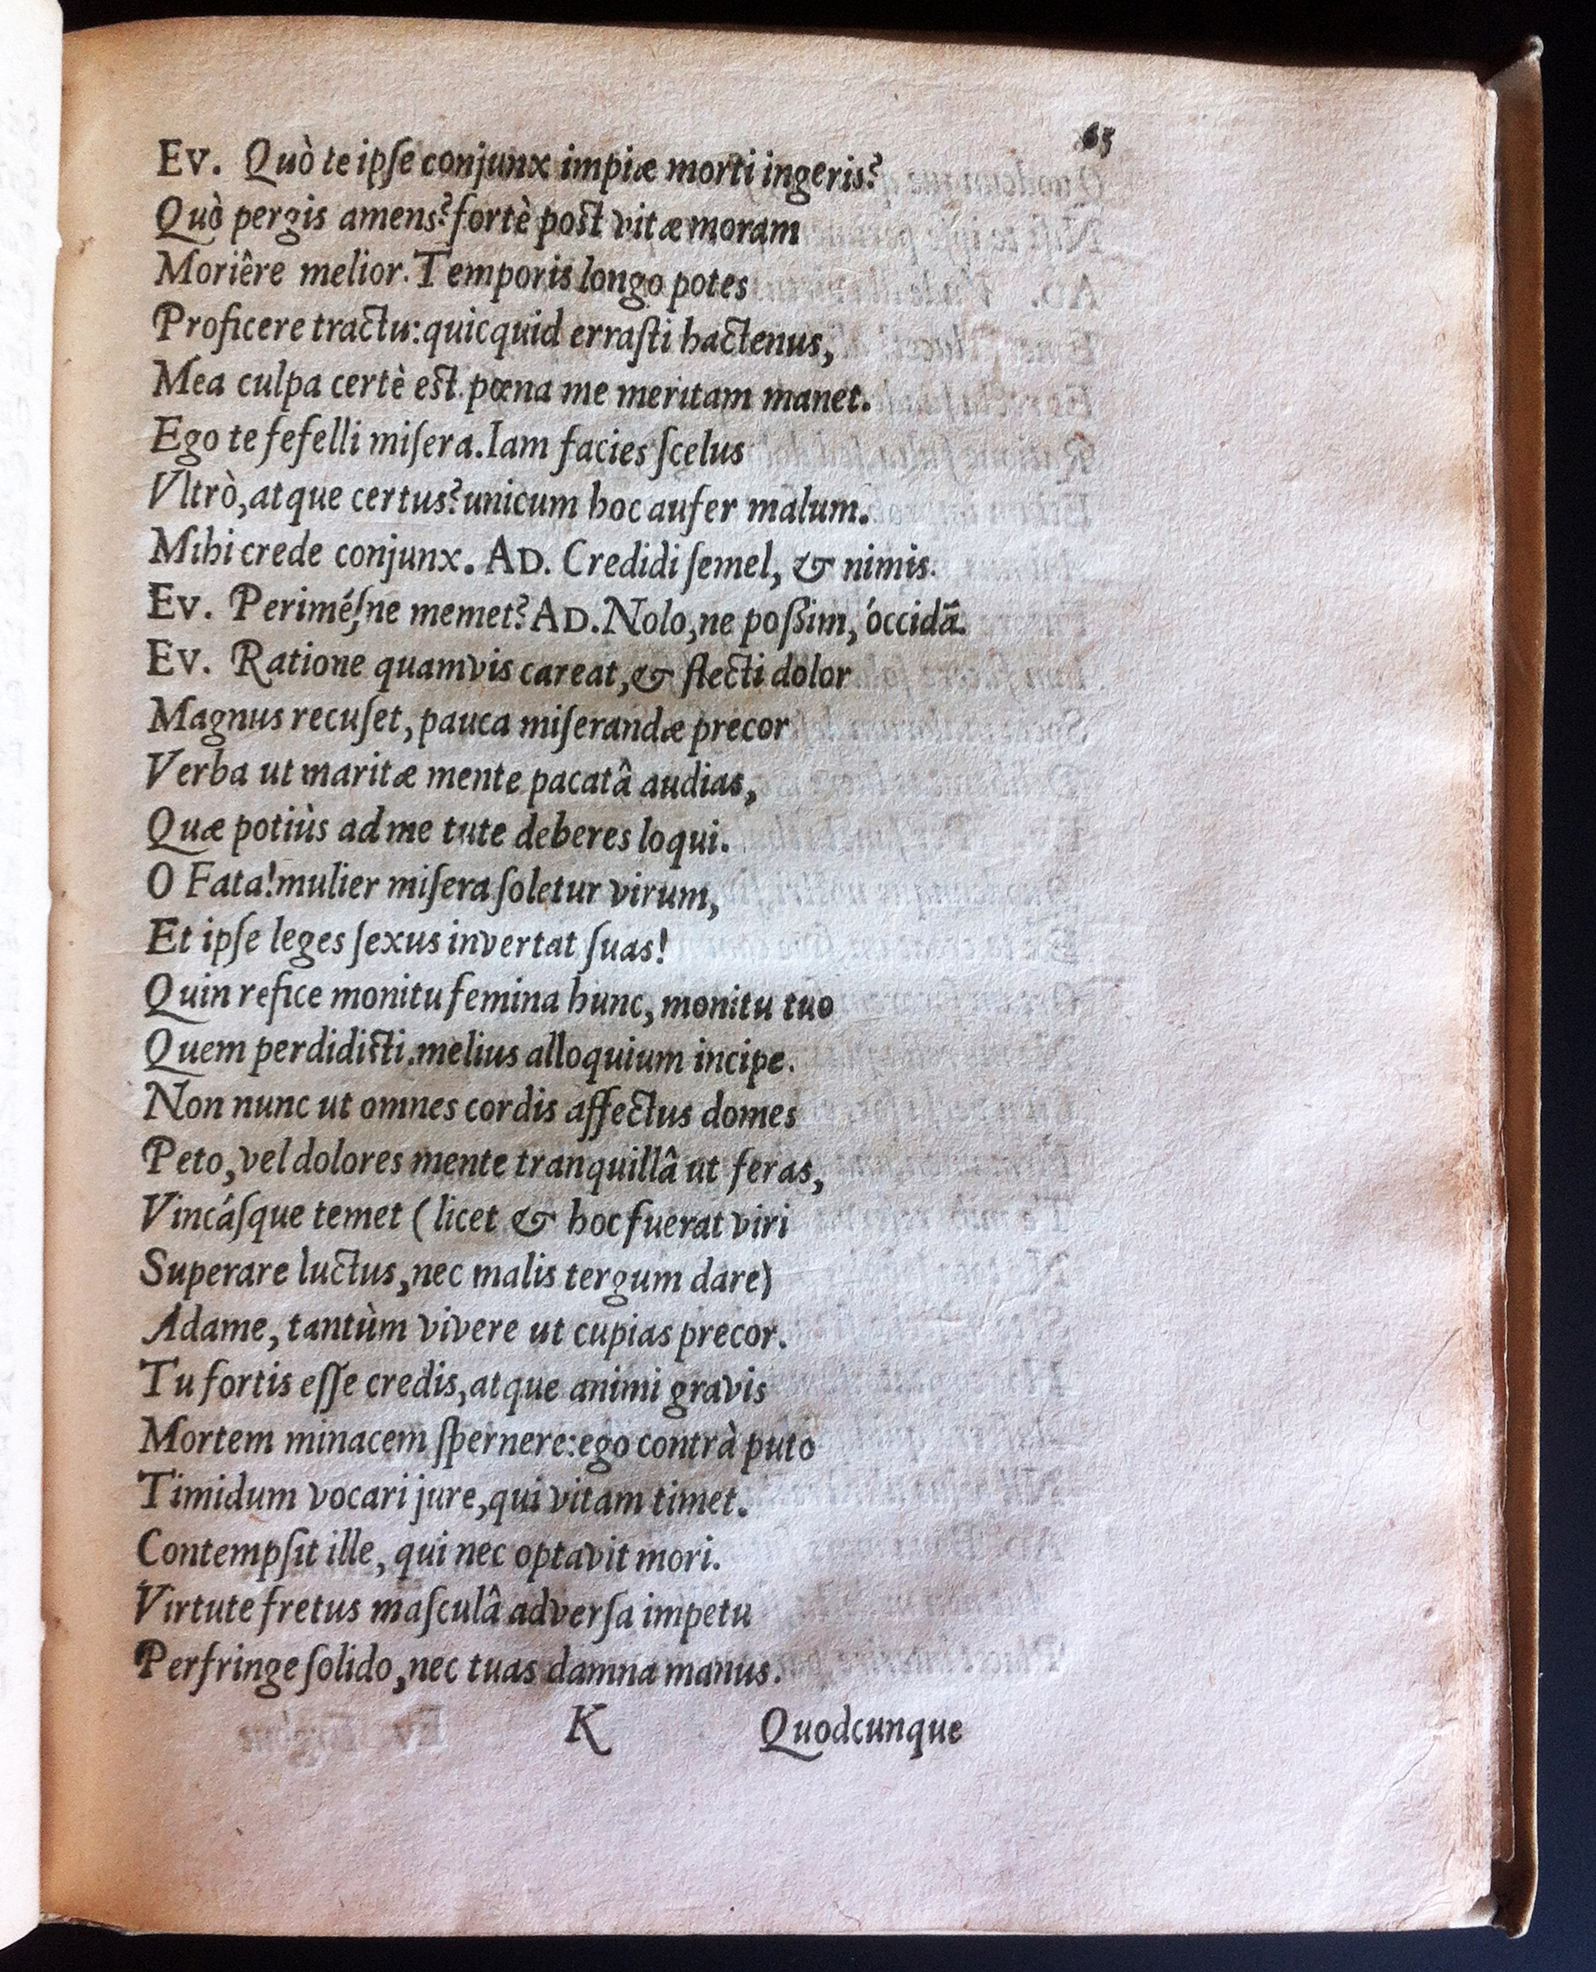 65
Ev. Quò te ipſe conjunx impiæ morti ingeris?
Quò pergis amens? fortè post vitæ moram
Moriêre melior. Temporis longo potes
Proficere tractu: quicquid errasti hactenus,
Mea culpa certè est. pœna me meritam manet.
Ego te fefelli miſera. Iam facies ſcelus
Vltrò, atque certus? unicum hoc aufer malum.
Mihi crede conjunx. AD. Credidi ſemel, & nimis.
Ev. Periméſne memet? AD. Nolo, ne poſsim, óccidã.
Ev. Ratione quamvis careat, & flecti dolor
Magnus recuſet, pauca miſerandæ precor
Verba ut maritæ mente pacatâ audias,
Quæ potiùs ad me tute deberes loqui.
O Fata! mulier miſera ſoletur virum,
Et ipſe leges ſexus invertat ſuas!
Quin refice monitu femina hunc, monitu tuo
Quem perdidicti. melius alloquium incipe.
Non nunc ut omnes cordis affectus domes
Peto, vel dolores mente tranquillâ ut feras,
Vincáſque temet (licet & hoc fuerat viri
Superare luctus, nec malis tergum dare)
Adame, tantùm vivere ut cupias precor.
Tu fortis eſſe credis, atque animi gravis
Mortem minacem ſpernere: ego contrà puto
Timidum vocari jure, qui vitam timet.
Contempſit ille, qui nec optavit mori.
Virtute fretus maſculâ adverſa impetu
Perfringe ſolido, nec tuas damna manus.
K Quodcunque